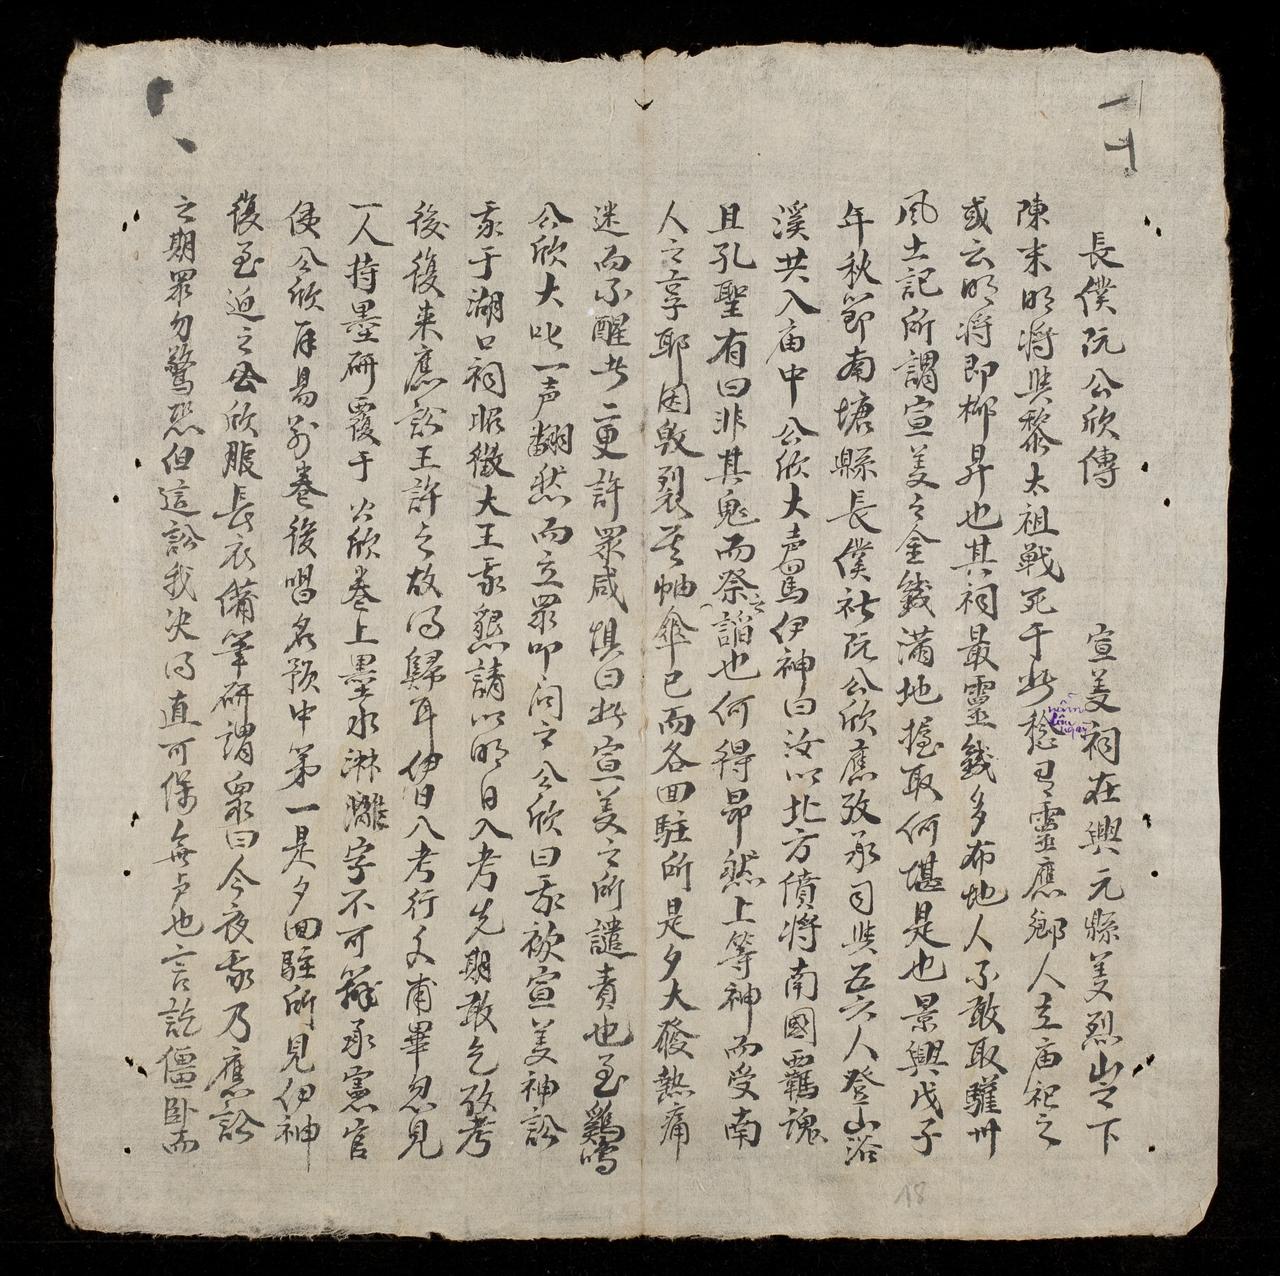 長僕阮公欣傳　宣美祠在興元縣美烈山之下
陳末明将與黎太祖戦死于此稔有靈應鄉人立庙祀之
năm lâu ngày
或云明将即柳昇也其祠最靈錢多布地人不敢取驩州
風土記所謂宣美之金錢満地握取何堪是也景興戊子
年秋節南塘縣長僕社阮公欣應攷承司與五六人登山沿
溪共入庙中公欣大声罵伊神曰汝以北方僨将南國羈魂
且孔聖有曰非其鬼而祭之謟也何得昂然上等神而受南
人之享耶因毁裂其袖傘已而各回駐所是夕大發熱痛
迷而不醒者二更許衆咸惧曰此宣美之所譴責也至鷄鳴
公欣大叱一声翻然而立衆叩问之公欣曰我被宣美神訟
我于湖口祠昭徵大王我懇請以明日入考先期敢乞攷考
後復来應訟王許之故得歸耳伊日入考行文甫畢忽見
一人持墨研覆于公欣卷上墨水淋灕字不可辨承憲官
使公欣再易别卷後唱名預中第一是夕回駐所見伊神
復至迫之公欣服長衣備筆研謂衆曰今夜我乃應訟
之期衆勿驚恐但這訟我决得直可保無虞也言訖僵卧而
18